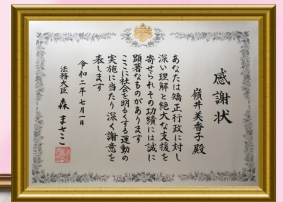 感謝状
嶺井美香子殿
あなたは矯正行政に対し
深い理解と絶大な支援を
寄せられその功績には誠に
顕著なものがあります
ここに社会を明るくする運動の
実施に当たり深く謝意を
表します
令和二年七月一日
法務大臣 森まさこ